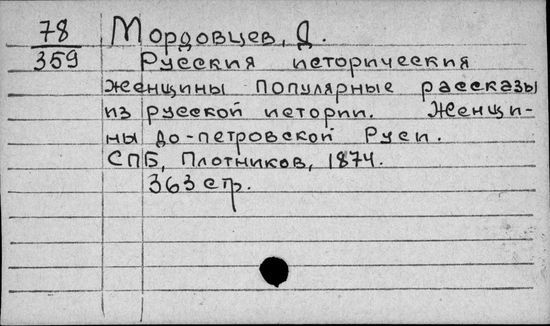 78
359
Мордовцев, Д.
Русския исторические
женщины Популярные рассказы
из русской истории. Женщи-
ны до-петровской Руси.
СПБ, Плотников, 1874.
363 стр.